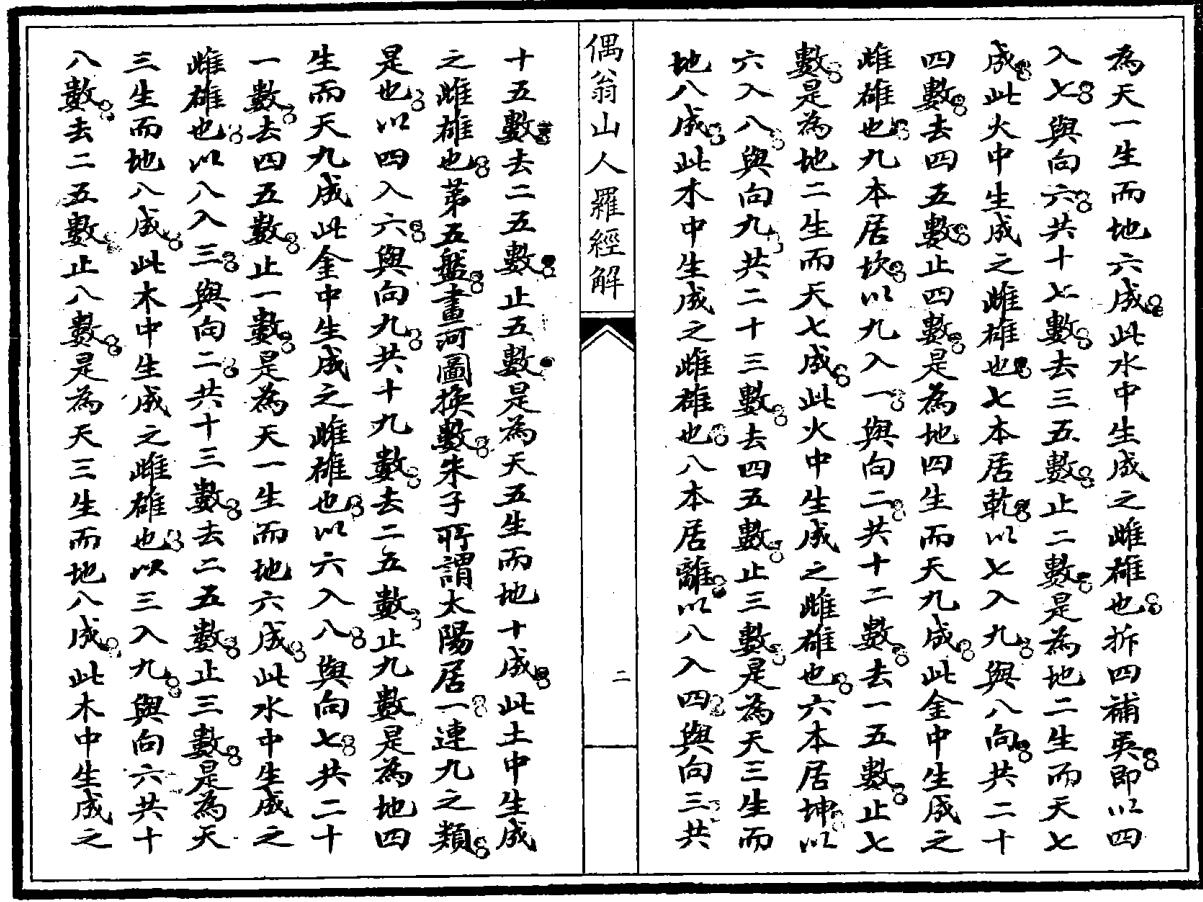 為天一生而地六成此水中生成之雌雄也拆四補巽即以四
入七與向六共十七數去三五數止二數是為地二生而天七
成此火中生成之雌雄也七本居乾以七入九與八向共二十
四數去四五數止四數是為地四生而天九成此金中生成之
雌雄也九本居坎以九入一與向二共十二數去一五數止七
數是為地二生而天七成此火中生成之雌雄也六本居坤以
六入八與向九共二十三數去四五數止三數是為天三生而
地八成此木中生成之雌雄也八本居離以八入四與向三共
偶翁山人羅經解
二
十五數去二五數止五數是為天五生而地十成此土中生成
之雌雄也第五盤畫河圖換數朱子所謂太陽居一連九之類
是也以四入六與向九共十九數去二五數止九數是為地四
生而天九成此金中生成之雌雄也以六入八與向七共二十
一數去四五數止一數是為天一生而地六成此水中生成之
雌雄也以八入三與向二共十三數去二五數止三數是為天
三生而地八成此木中生成之雌雄也以三入九與向六共十
八數去二五數止八數是為天三生而地八成此木中生成之